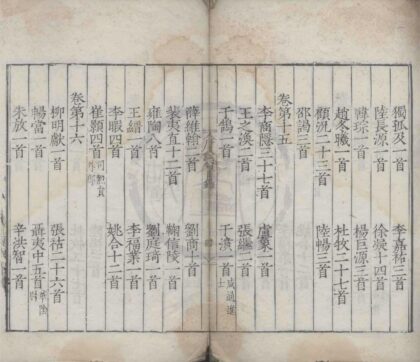 獨孤久一首　李嘉祐三首
陸長源一首　徐凝十四首
韓琮一首　楊巨源三首
趙冬職一首　杜牧二十七首
顧況二十三首　陸暢三首
邵謁三首
卷第十五
李商隱三十七首　盧橐一首
王之渙二首　張繼二首
于鵠一首　于濆一首
薛維翰二首　劉商十首
裴夷直十二首　鞠信陵一首
雍陶八首　劉庭琦一首
王縉一首　李福業一首
李暇四首　姚合十二首
崔顥四首
卷第十六
柳明獻一首　張祜二十六首
暢當一首　聶夷中五首
朱放一首　辛洪智一首